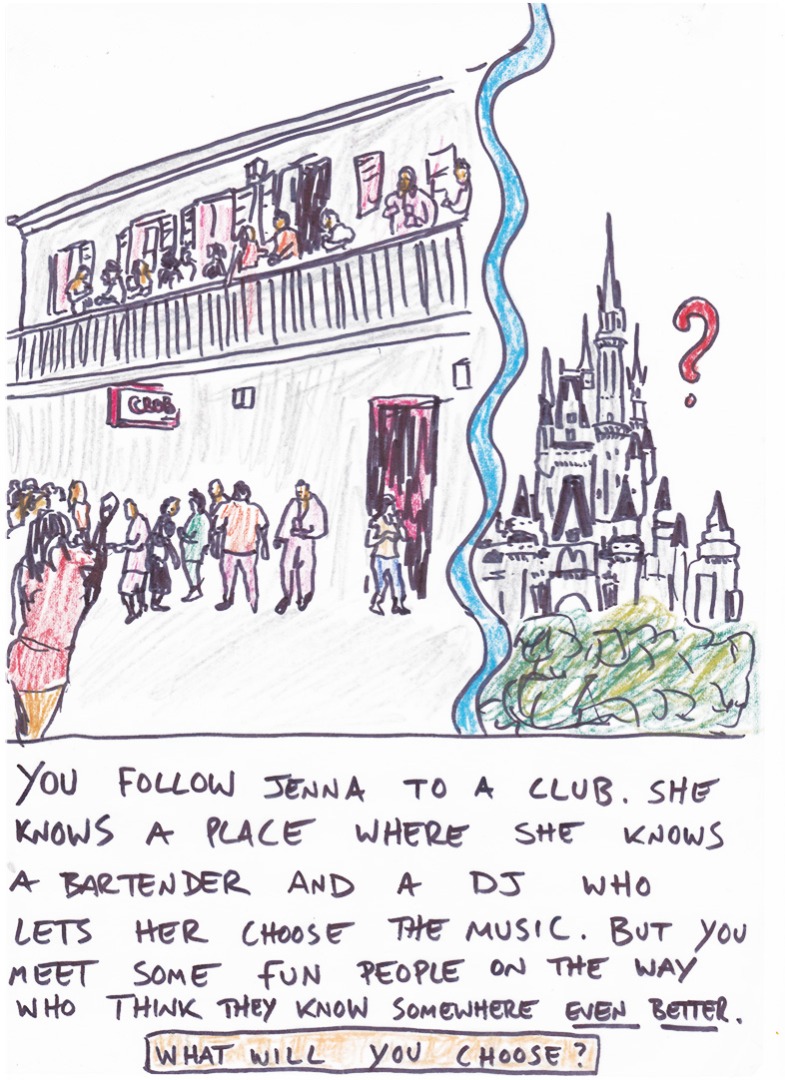 CLUB
?
YOU FOLLOW JENNA TO A CLUB. SHE
KNOWS A PLACE WHERE SHE KNOWS
A BARTENDER AND A DJ WHO
LETS HER CHOOSE THE MUSIC. BUT YOU
MEET SOME FUN PEOPLE ON THE WAY
WHO THINK THEY KNOW SOMEWHERE EVEN BETTER.
WHAT WILL YOU CHOOSE?